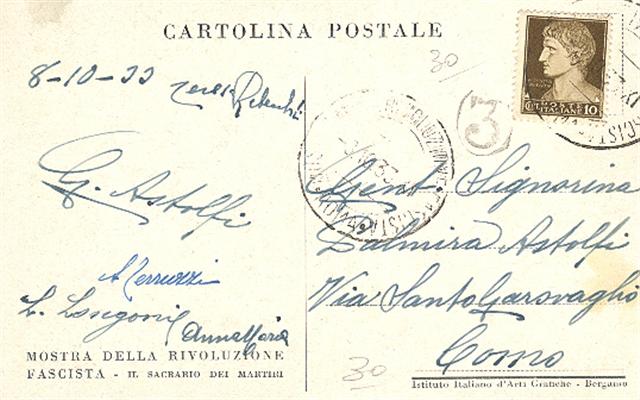 CARTOLINA POSTALE
30
8-10-33
3
POSTE
ITALIANE 10
G. Astolfi
Gent Signorina
Palmira Astolfi
Via Santo Garovaglio
Como
A Terruzzi
L. Longoni
Anna Maria
MOSTRA DELLA RIVOLUZIONE
FASCISTA - IL SACRARIO DEI MARTIRI
30
Istituto Italiano d'Arti Grafiche - Bergamo